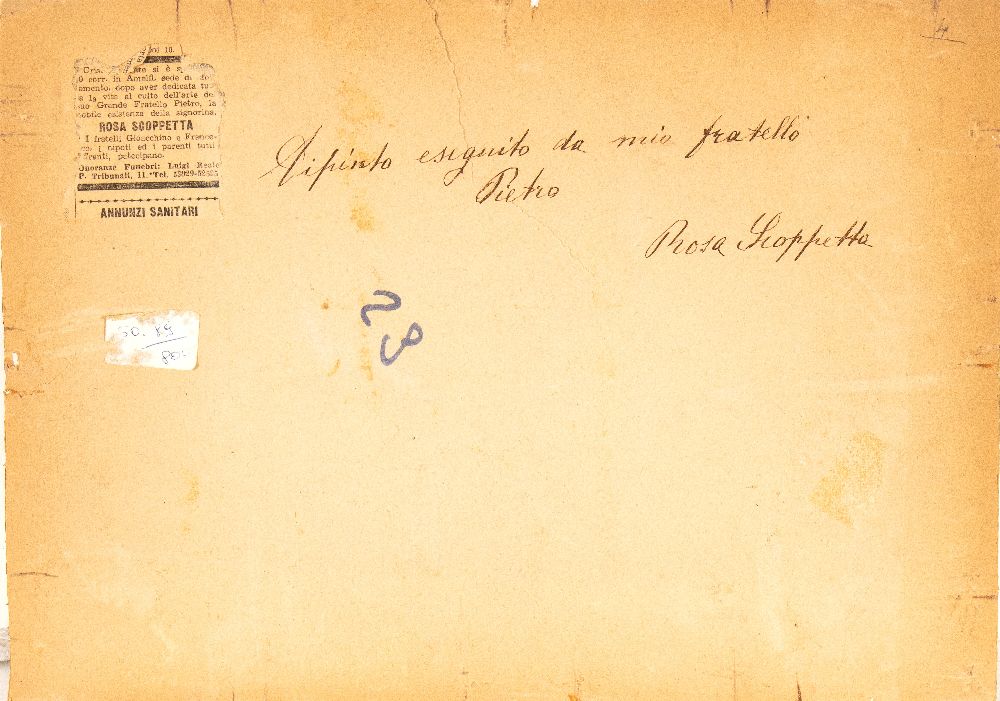 si è
corr. in Amalfi, sede
dopo aver dedicata
vita al culto dell'arte
Grande Fratello Pietro, la
nobile esistenza della signorina.
ROSA SCOPPETTA
I fratelli Gioacchino e
i nipoti ed i parenti tutti
partecipano.
Onoranze Funebri: Luigi Reale
P. Tribunali, 11. Tel.
ANNUNZI SANITARI
Dipinto eseguito da mio fratello
Pietro
Rosa Scoppetta
4